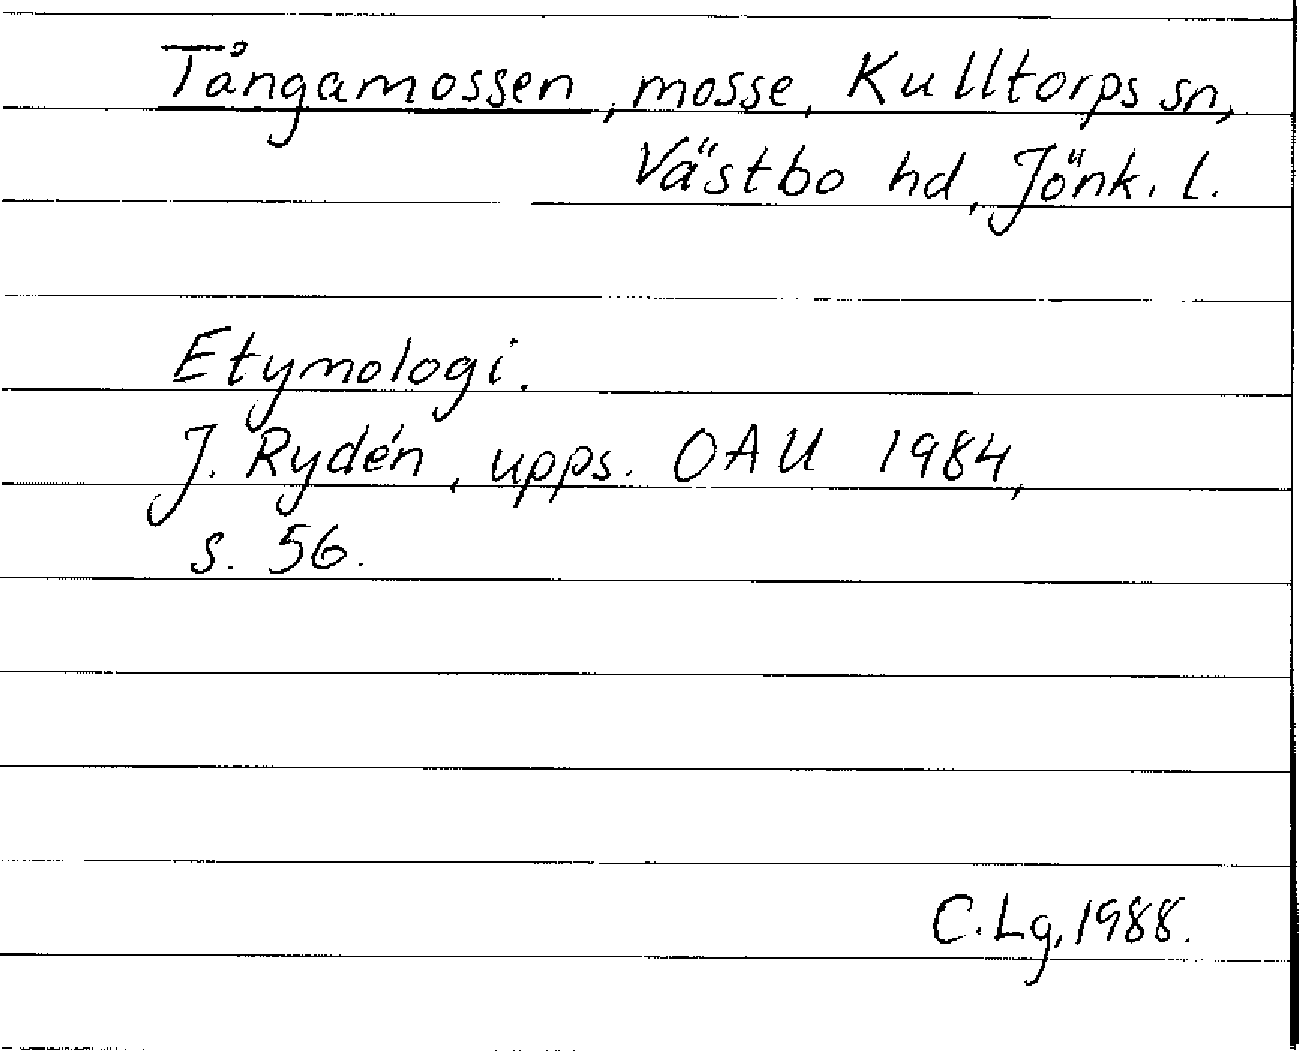 Tångamossen, mosse, Kulltorps sn,
Västbo hd, Jönk. l.
Etymologi.
J. Rydén, upps. OAU 1984,
s. 56.
C.Lg, 1988.